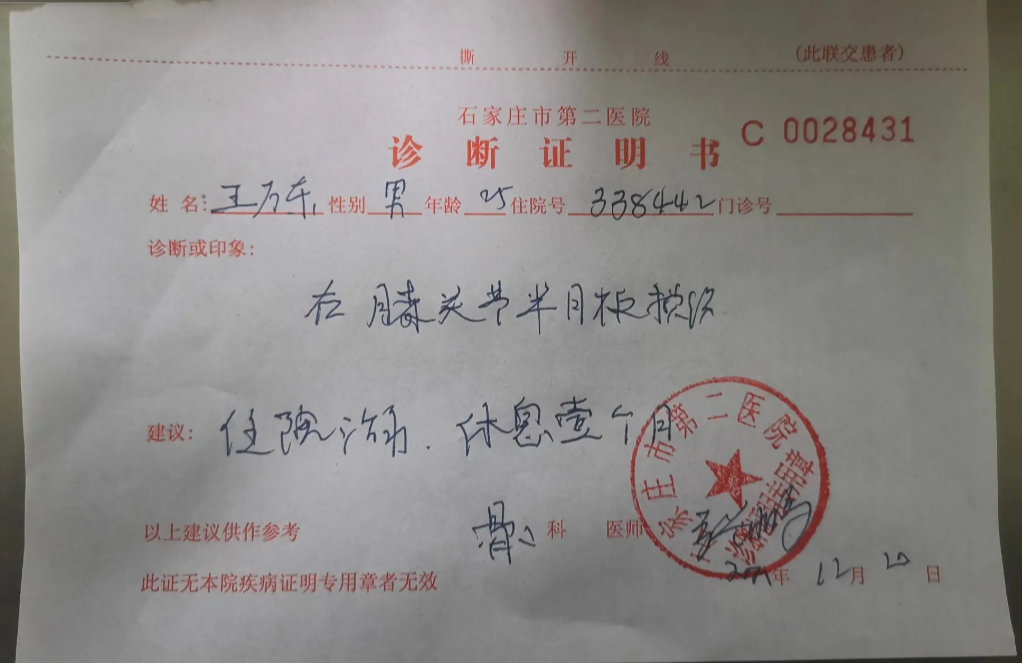 撕 开 线 (此联交患者)
石家庄市第二医院
诊断证明书 C 0028431
姓名:王万东 性别 男 年龄 25 住院号 338442 门诊号
诊断或印象:
右膝关节半月板损伤
建议: 住院治疗. 休息壹个月
家庄市第二医院
以上建议供作参考 骨 科 医师
年 12 月 20 日
此证无本院疾病证明专用章者无效